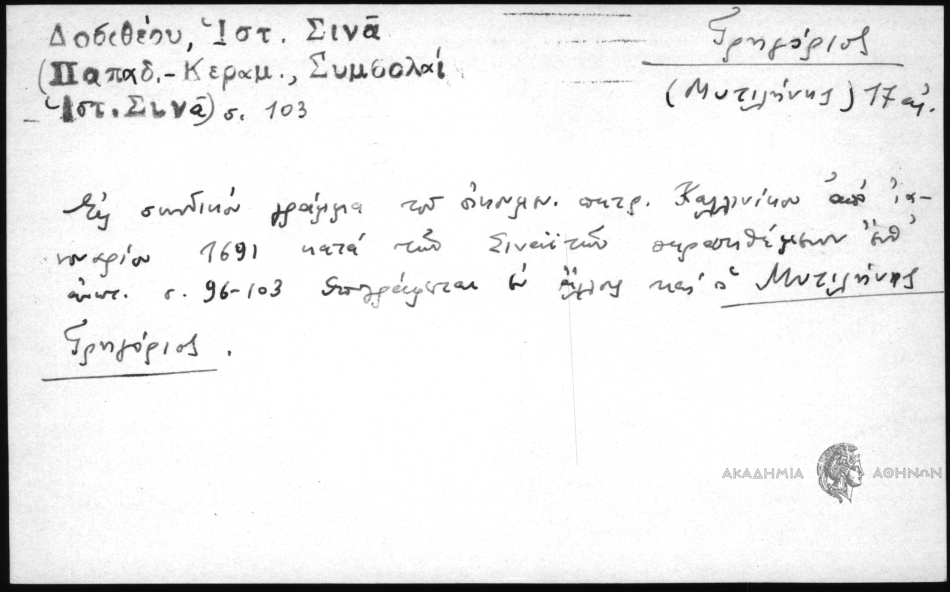 Δοσιθέου, Ἱστ. Σινᾶ
(Παπαδ.-Κεραμ., Συμβολαί
Ἱστ. Σινᾶ) σ. 103
Γρηγόριος
(Μυτιλήνης) 17 αἰ.
Εἰς συνοδικόν γράμμα τοῦ οἰκουμεν. πατρ. Καλλινίκου ἀπό ἰα-
νουαρίου 1691 κατά τῶν Σιναϊτῶν παρατιθέμενον ἐνθ'
ἀνωτ. σ. 96-103 ὑπογράφεται ἐν ἄλλοις καί ὁ Μυτιλήνης
Γρηγόριος.
ΑΚΑΔΗΜΙΑ ΑΘΗΝΩΝ